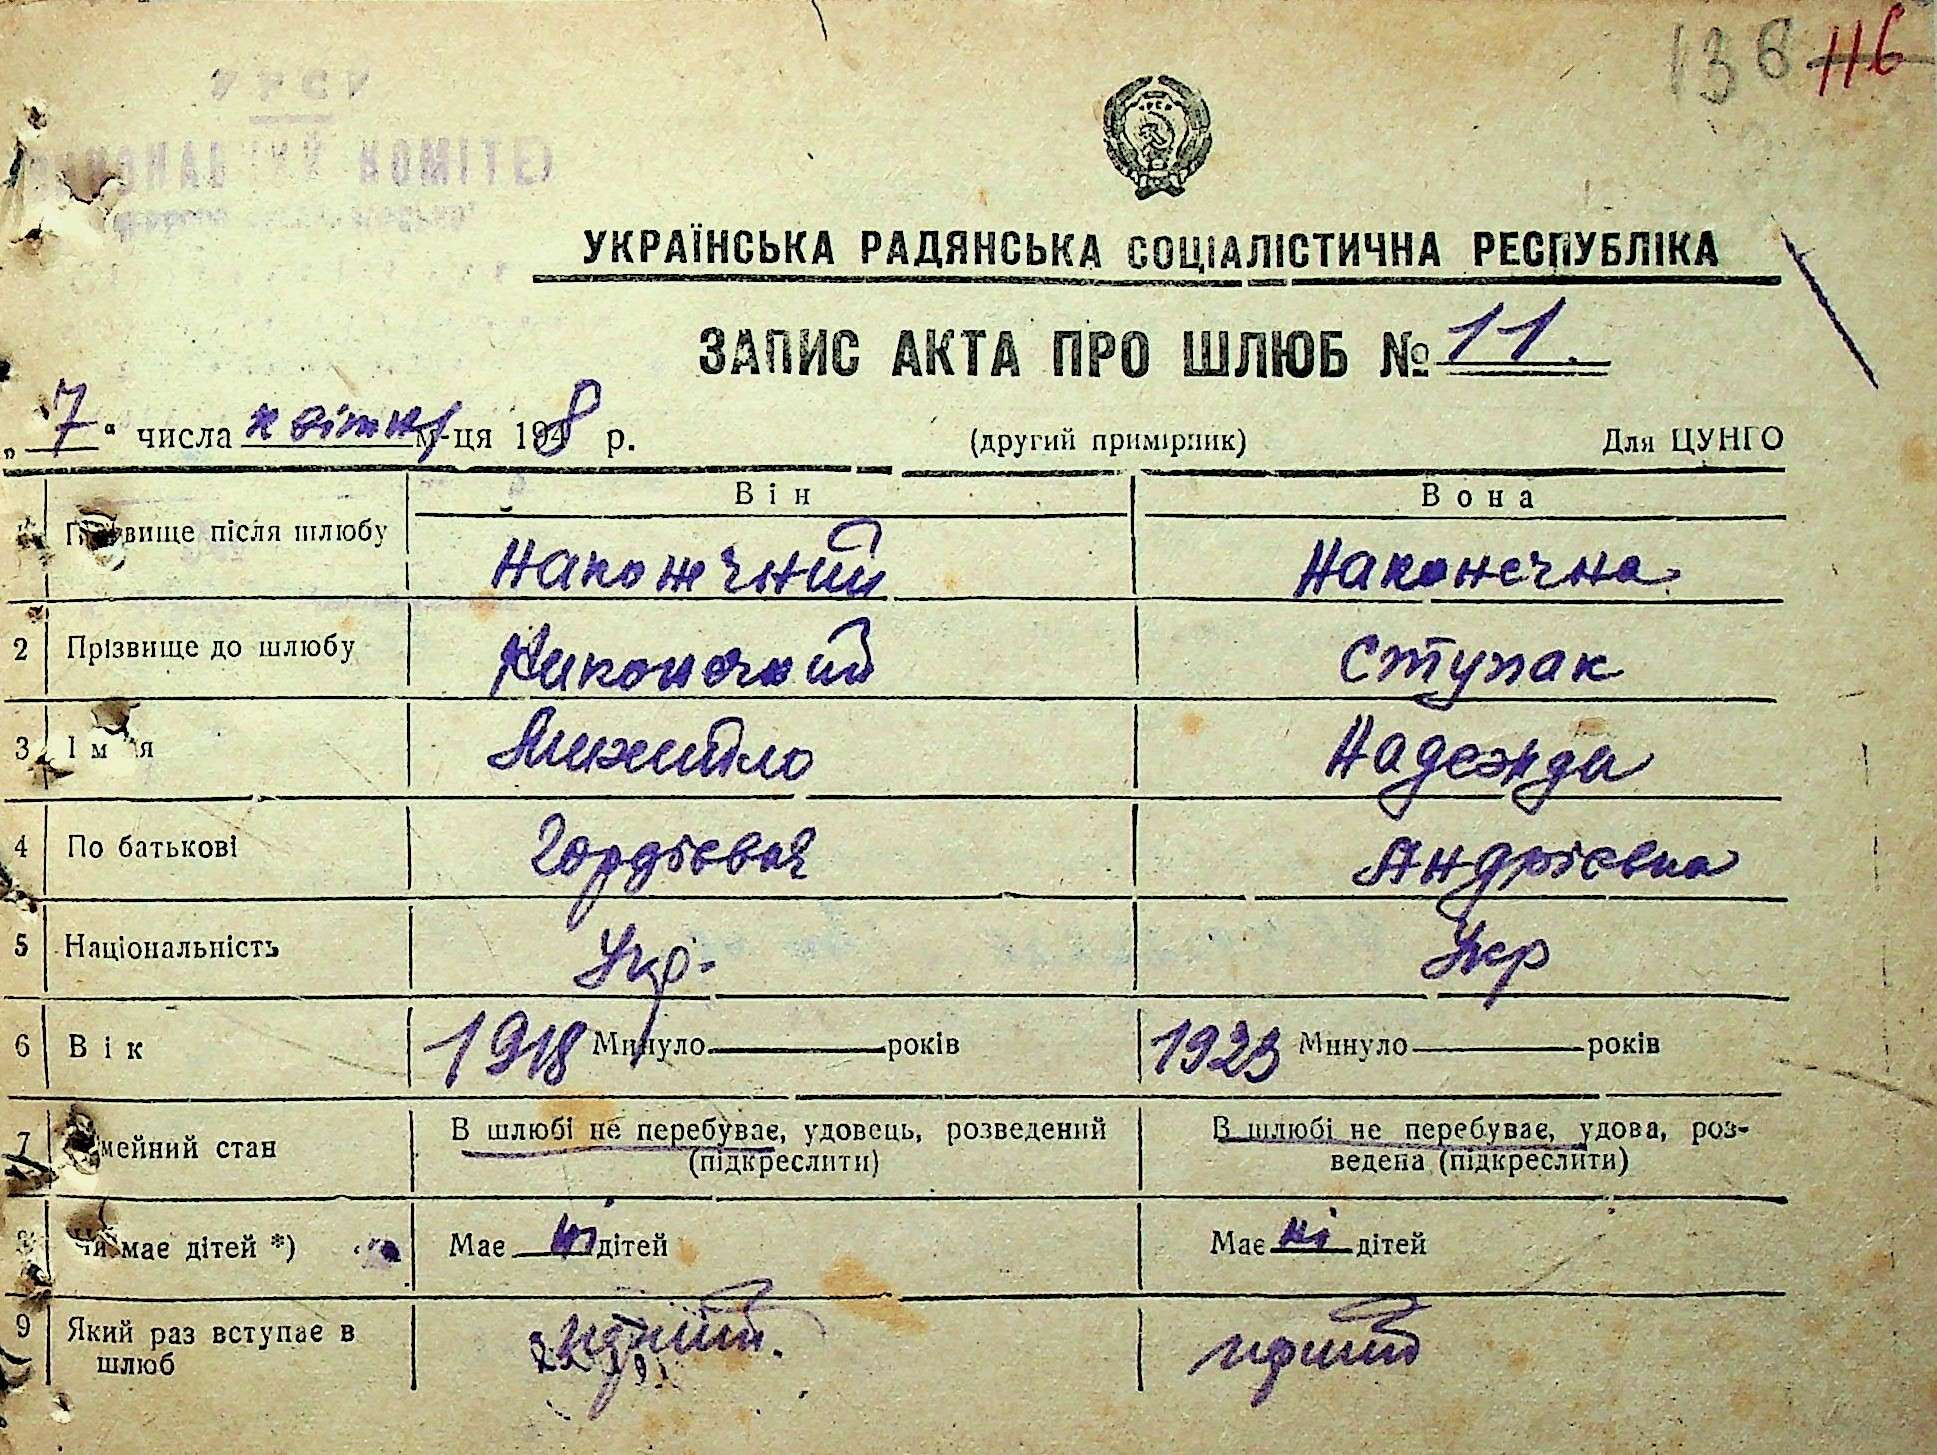 138 116
УКРАЇНСЬКА РАДЯНСЬКА СОЦІАЛІСТИЧНА РЕСПУБЛІКА
ЗАПИС АКТА ПРО ШЛЮБ № 11.
„7“ числа квітня м-ця 1948 р. (другий примірник) Для ЦУНГО
Він Вона
Прізвище після шлюбу Наконечний Наконечна
2 Прізвище до шлюбу Наконечний Ступак
3 Ім'я Михайло Надежда
4 По батькові Гордієвич Андріевна
5 Національність Укр. Укр
6 Вік 1918 Минуло років 1923 Минуло років
7 Сімейний стан В шлюбі не перебуває, удовець, розведений (підкреслити) В шлюбі не перебуває, удова, роз-
ведена (підкреслити)
8 Чи має дітей *) Має ні дітей Має ні дітей
9 Який раз вступає в
шлюб перший